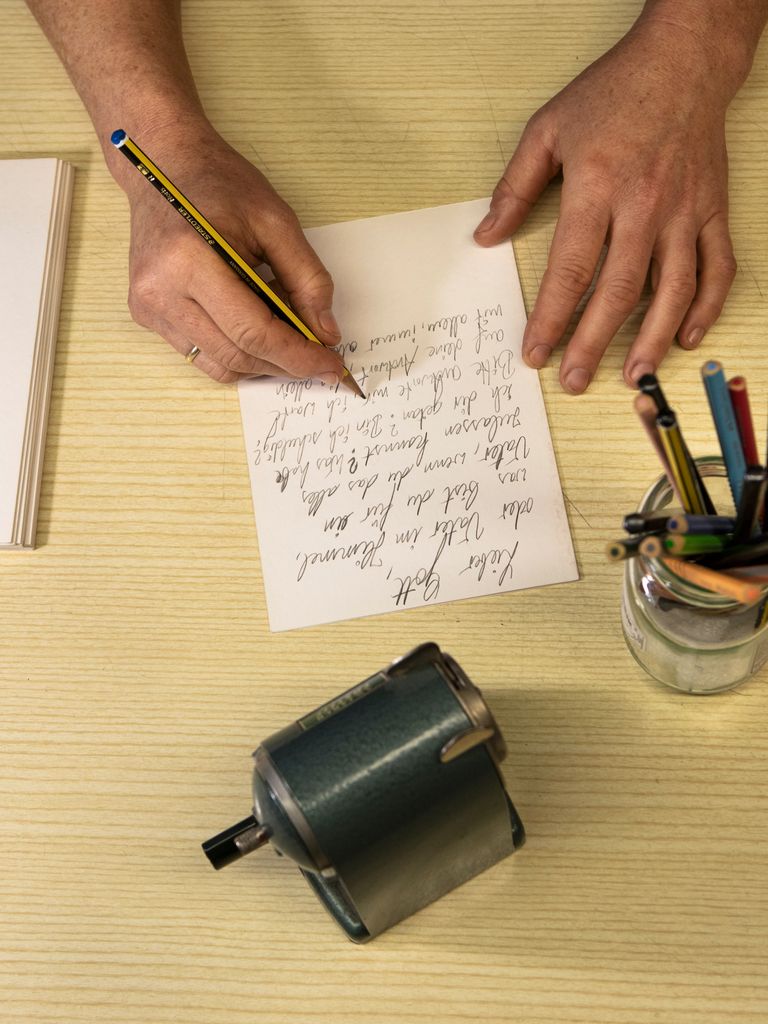 Lieber Gott,
oder Vater im Himmel,
was bist du für ein
Vater, wenn du das alles
zulassen kannst? Was habe
ich dir getan? Bin ich schuldig?
Bitte antworte mir, ich warte
auf deine Antwort, allein
mit allem, immer
STAEDTLER